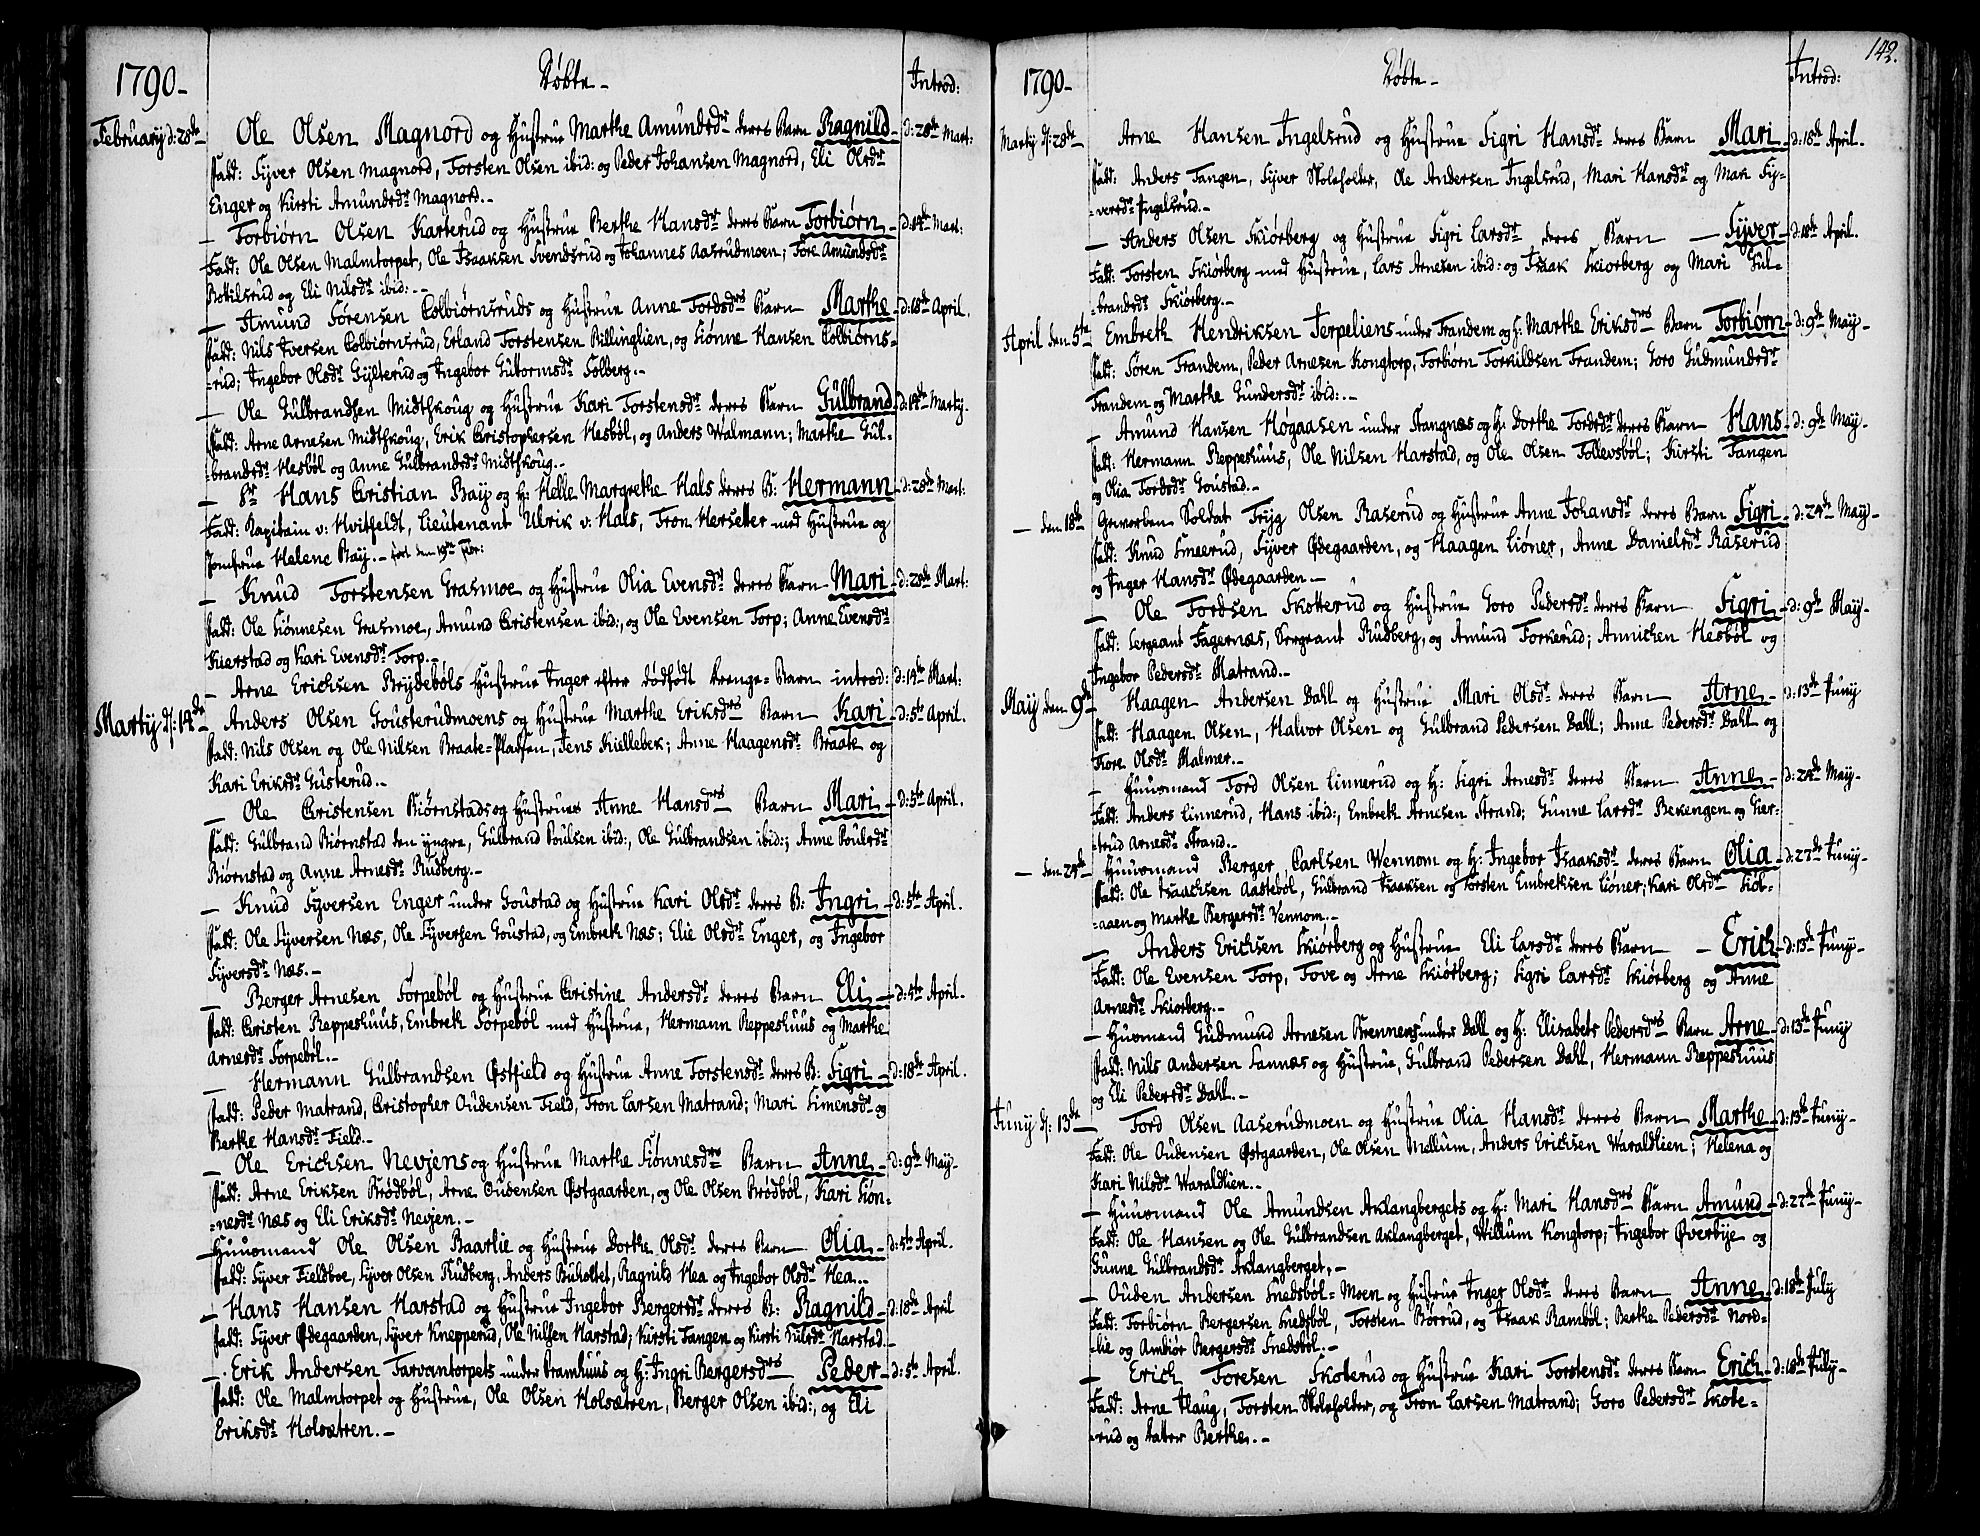 1790 - Døbte - Introd:
February d: 28de Ole Olsen Magnord og Hustrue Marthe Amundsdr deres Barn Ragnild d: 28de Mart:
Fadd: Syver Olsen Magnord, Torsten Olsen ibid: og Peder Johansen Magnord, Eli Olsdr
Enger og Kirsti Amundsdr Magnord. -
- Torbiørn Olsen Karterud og Hustrue Berthe Hansdr deres Barn Torbiørn d: 14de Mart:
Fadd: Ole Olsen Malmtorpet, Ole Isaaksen Svendsrud og Johannes Aaserudmoen; Tore Amundsdr
Botilsrud og Eli Nilsdr ibid: -
- Amund Sørensen Colbiørnsruds og Hustrue Anne Tordsdrs Barn Marthe d: 18de April.
Fadd: Nils Iversen Colbiørnsrud, Erland Torstensen Billinglien, og Siønne Hansen Colbiørns-
-rud; Ingebor Olsdr Gylterud og Ingebor Guttormsdr Solberg. -
- Ole Gulbrandsen Midthkoug og Hustrue Kari Torstensdr deres Barn Gulbrand d: 14de Marty.
Fadd: Arne Arnesen Midthkoug, Erik Cristophersen Hesbøl, og Anders Walmann; Marthe Gul-
-brandsdr Hesbøl og Anne Gulbrandsdr Midthkoug. -
- Sr Hans Cristian Bay og H: Helle Margrethe Hals deres B: Hermann d: 28de Mart:
Fadd: Kapitain v: Hvitfeldt, Lieutenant Ulrik v: Hals, Tron Hersetter med Hustrue og
Jomfrue Helene Bay. -
- Knud Torstensen Grasmoe og Hustrue Olia Evensdr deres Barn Mari d: 28de Mart:
Fadd: Ole Siønnesen Grasmoe, Amund Cristensen ibid:, og Ole Evensen Torp; Anne Evensdr
Kierstad og Kari Evensdr Torp. -
- Arne Erichsen Brydebøls Hustrue Inger efter dødfødt Drenge-Barn introd: d: 14de Mart:
Marty d: 14de Anders Olsen Gousterudmoens og Hustrue Marthe Eriksdrs Barn Kari d: 5te April.
Fadd: Nils Olsen og Ole Nilsen Braate-Pladsen, Jens Kiellebek; Anne Haagensdr Braate og
Kari Eriksdr Gusterud. -
- Ole Cristensen Biørnstads og Hustrues Anne Hansdrs Barn Mari d: 5te April.
Fadd: Gulbrand Biørnstad den yngre, Gulbrand Poulsen ibid:, Ole Gulbrandsen ibid:; Anne Poulsdr
Biørnstad og Anne Arnesdr Rudberg. -
- Knud Syversen Enger under Goustad og Hustrue Kari Olsdr deres B: Ingri d: 5te April.
Fadd: Ole Syversen Næs, Ole Syversen Goustad, og Embrek Næs; Elie Olsdr Enger, og Ingebor
Syversdr Næs. -
- Berger Arnesen Torpebøl og Hustrue Cristine Andersdr deres Barn Eli d: 5te April.
Fadd: Cristen Reppeshuus, Embrek Torpebøl med Hustrue, Hermann Reppeshuus og Marthe
Arnesdr Torpebøl. -
- Hermann Gulbrandsen Østfield og Hustrue Anne Torstensdr deres B: Sigri d: 18de April.
Fadd: Peder Matrand, Cristopher Oudensen Field, Tron Larsen Matrand; Mari Simensdr og
Berthe Hansdr Field. -
- Ole Erichsen Nevjens og Hustrue Marthe Siønnesdrs Barn Anne d: 9de May -
Fadd: Arne Eriksen Brødbøl, Arne Oudensen Østgaarden, og Ole Olsen Brødbøl, Kari Siøn-
-nesdr Næs og Eli Eriksdr Nevjen. -
- Huusmand Ole Olsen Baarlie og Hustrue Dorthe Olsdr deres Barn Olia d: 5te April.
Fadd: Syver Fieldboe, Syver Olsen Rudberg, Anders Buholtet, Ragnild Hea og Ingebor Olsdr Hea. -
- Hans Hansen Harstad og Hustrue Ingebor Bergersdr deres B: Ragnild d: 18de April
Fadd: Syver Ødegaarden, Syver Knepperud, Ole Nilsen Harstad; Kirsti Tangen og Kirsti Nilsdr Harstad -
- Erik Andersen Tarvantorpets under Dramhuus og H: Ingri Bergersdrs Peder d: 5te April.
Fadd: Ole Malmtorpet og Hustrue, Ole Olsen Holsætren, Berger Olsen ibid:, og Eli
Eriksdr Holsætren. -
142.
1790 - Døbte - Introd:
Marty d: 28de Arne Hansen Ingelsrud og Hustrue Sigri Hansdr deres Barn Mari d: 18de April.
Fadd: Anders Tangen, Syver Skoleholder, Ole Andersen Ingelsrud, Mari Hansdr og Mari Sy-
-versdr Ingelsrud. -
- Anders Olsen Skiørberg og Hustrue Sigri Larsdr deres Barn - Syver d: 18de April.
Fadd: Torsten Skiørberg med Hustrue, Lars Arnesen ibid: og Isaak Skiorberg og Mari Gul-
-brandsdr Skiørberg. -
April den 5te Embreth Hendriksen Jerpeliens under Trandem og H: Marthe Eriksdrs Barn Torbiørn d: 9de May -
Fadd: Søren Trandem, Peder Arnesen Kongtorp, Torbiørn Torkildsen Trandem; Goro Gudmundsdr
Trandem og Marthe Gundersdr ibid: -
- Amund Hansen Høgaasen under Stangnæs og H: Dorthe Tordsdr deres Barn Hans d: 9de May -
Fadd: Hermann Reppeshuus, Ole Nilsen Harstad, og Ole Olsen Tollevsbøl; Kirsti Tangen
og Olia Tordsdr Goustad. -
- den 18de Gevorben Soldat Tryg Olsen Raserud og Hustrue Anne Johansdr deres Barn Sigri d: 24de May -
Fadd: Knud Smeerud, Syver Ødegaarden, og Haagen Liøner, Anne Danielsdr Raserud
og Inger Hansdr Ødegaarden -
- Ole Tordsen Skotterud og Hustrue Goro Pedersdr deres Barn Sigri d: 9de May -
Fadd: Sergeant Fagernæs, Sergeant Rudberg, og Amund Torkerud; Annichen Hesbøl og
Ingebor Pedersdr Matrand. -
May den 9de Haagen Andersen Dahl og Hustrue Mari Olsdr deres Barn Arne d: 13de Juny
Fadd: Haagen Olsen, Halvor Olsen og Gulbrand Pedersen Dahl; Anne Pedersdr Dahl og
Tore Olsdr Malmer. -
- Huusmand Tord Olsen Linnerud og H: Sigri Arnesdr deres Barn Anne d: 24de May -
Fadd: Anders Linnerud, Hans ibid:, Embrek Arnesen Strand; Gunne Larsdr Bekengen og Gier-
-trud Arnesdr Strand. -
- den 24de Huusmand Berger Carlsen Wennom og H: Ingebor Isaaksdr deres Barn Olia d: 27de Juny -
Fadd: Ole Isaachsen Aastebøl, Gulbrand Isaaksen og Torsten Embreksen Liøner; Kari Olsdr Kiøl-
-aaen og Marthe Bergersdr Vennom. -
- Anders Erichsen Skiørberg og Hustrue Eli Larsdr deres Barn - Erich d: 13de Juny -
Fadd: Ole Evensen Torp, Tove og Arne Skiørberg; Sigri Larsdr Skiørberg og Anne
Arnesdr Skiorberg. -
- Huusmand Gudmund Arnesen Brennens under Dahl og H: Elisabets Pedersdrs Barn Arne d: 13de Juny
Fadd: Nils Andersen Sannæs og Hustrue, Gulbrand Pedersen Dahl, Hermann Reppeshuus
og Eli Pedersdr Dahl. -
Juny d: 13de Tord Olsen Aaserudmoen og Hustrue Olia Hansdr deres Barn Marthe d: 13de Juny -
Fadd: Ole Oudensen Østgaarden, Ole Olsen Mellum, Anders Erichsen Waraldlien; Helena og
Kari Nilsdr Waraldlien. -
- Huusmand Ole Amundsen Aklangbergets og H: Mari Hansdrs Barn Amund d: 27de Juny -
Fadd: Ole Hansen og Ole Gulbrandsen Aklangberget, Willum Kongtorp; Ingebor Øverbye og
Gunne Gulbrandsdr Aklangberget, -
- Ouden Andersen Snedsbøl-Moen og Hustrue Inger Olsdr deres Barn Anne d: 18de July
Fadd: Torbiørn Bergersen Snedsbøl, Torsten Børrud, og Isaak Rambøl; Berthe Pedersdr Nord-
-lie og Ambiør Bergersdr Snedsbøl. -
- Erich Toresen Skoterud og Hustrue Kari Torstensdr deres Barn Erich d: 18de July -
Fadd: Arne Haug, Torsten Skoleholder, og Tron Larsen Matrand; Goro Pedersdr Skote-
-rud og Berthe. -